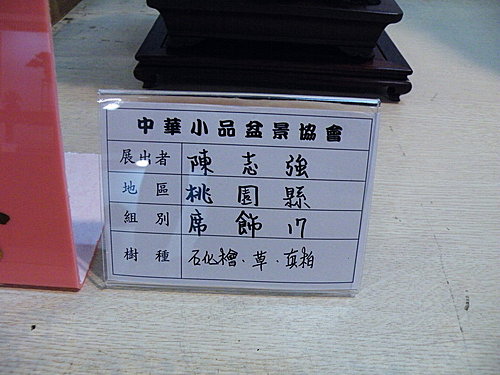 中華小品盆景協會
展出者 陳志強
地區 桃園縣
組別 席飾 17
樹種 石化檜．草．真柏